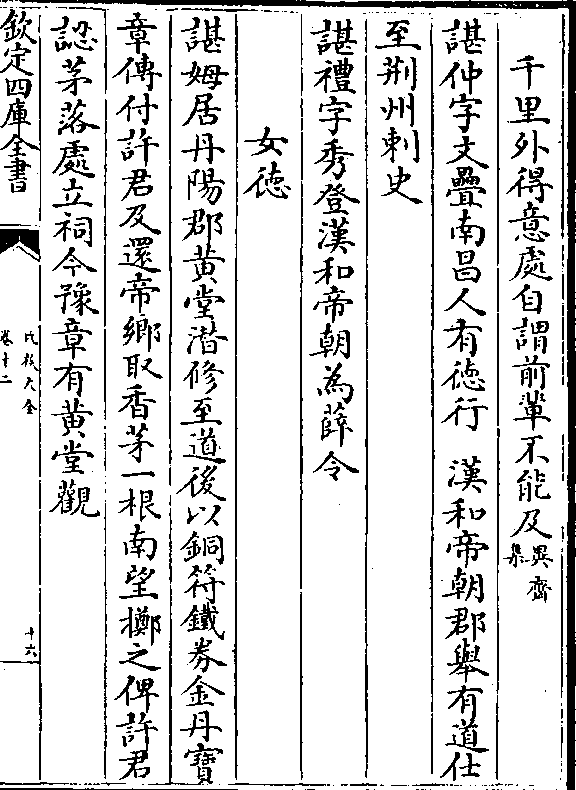 千里外得意處自謂前輩不能及巽齋集
諶仲字文疊南昌人有徳行　漢和帝朝郡舉有道仕
至荆州刺史
諶禮字秀登漢和帝朝為薛令
女徳
諶姆居丹陽郡黄堂潛修至道後以銅符鐵券金丹寶
章傳付許君及還帝鄉取香茅一根南望擲之俾許君
認茅落處立祠今豫章有黄堂觀
欽定四庫全書
氏族大全
卷十二
十六